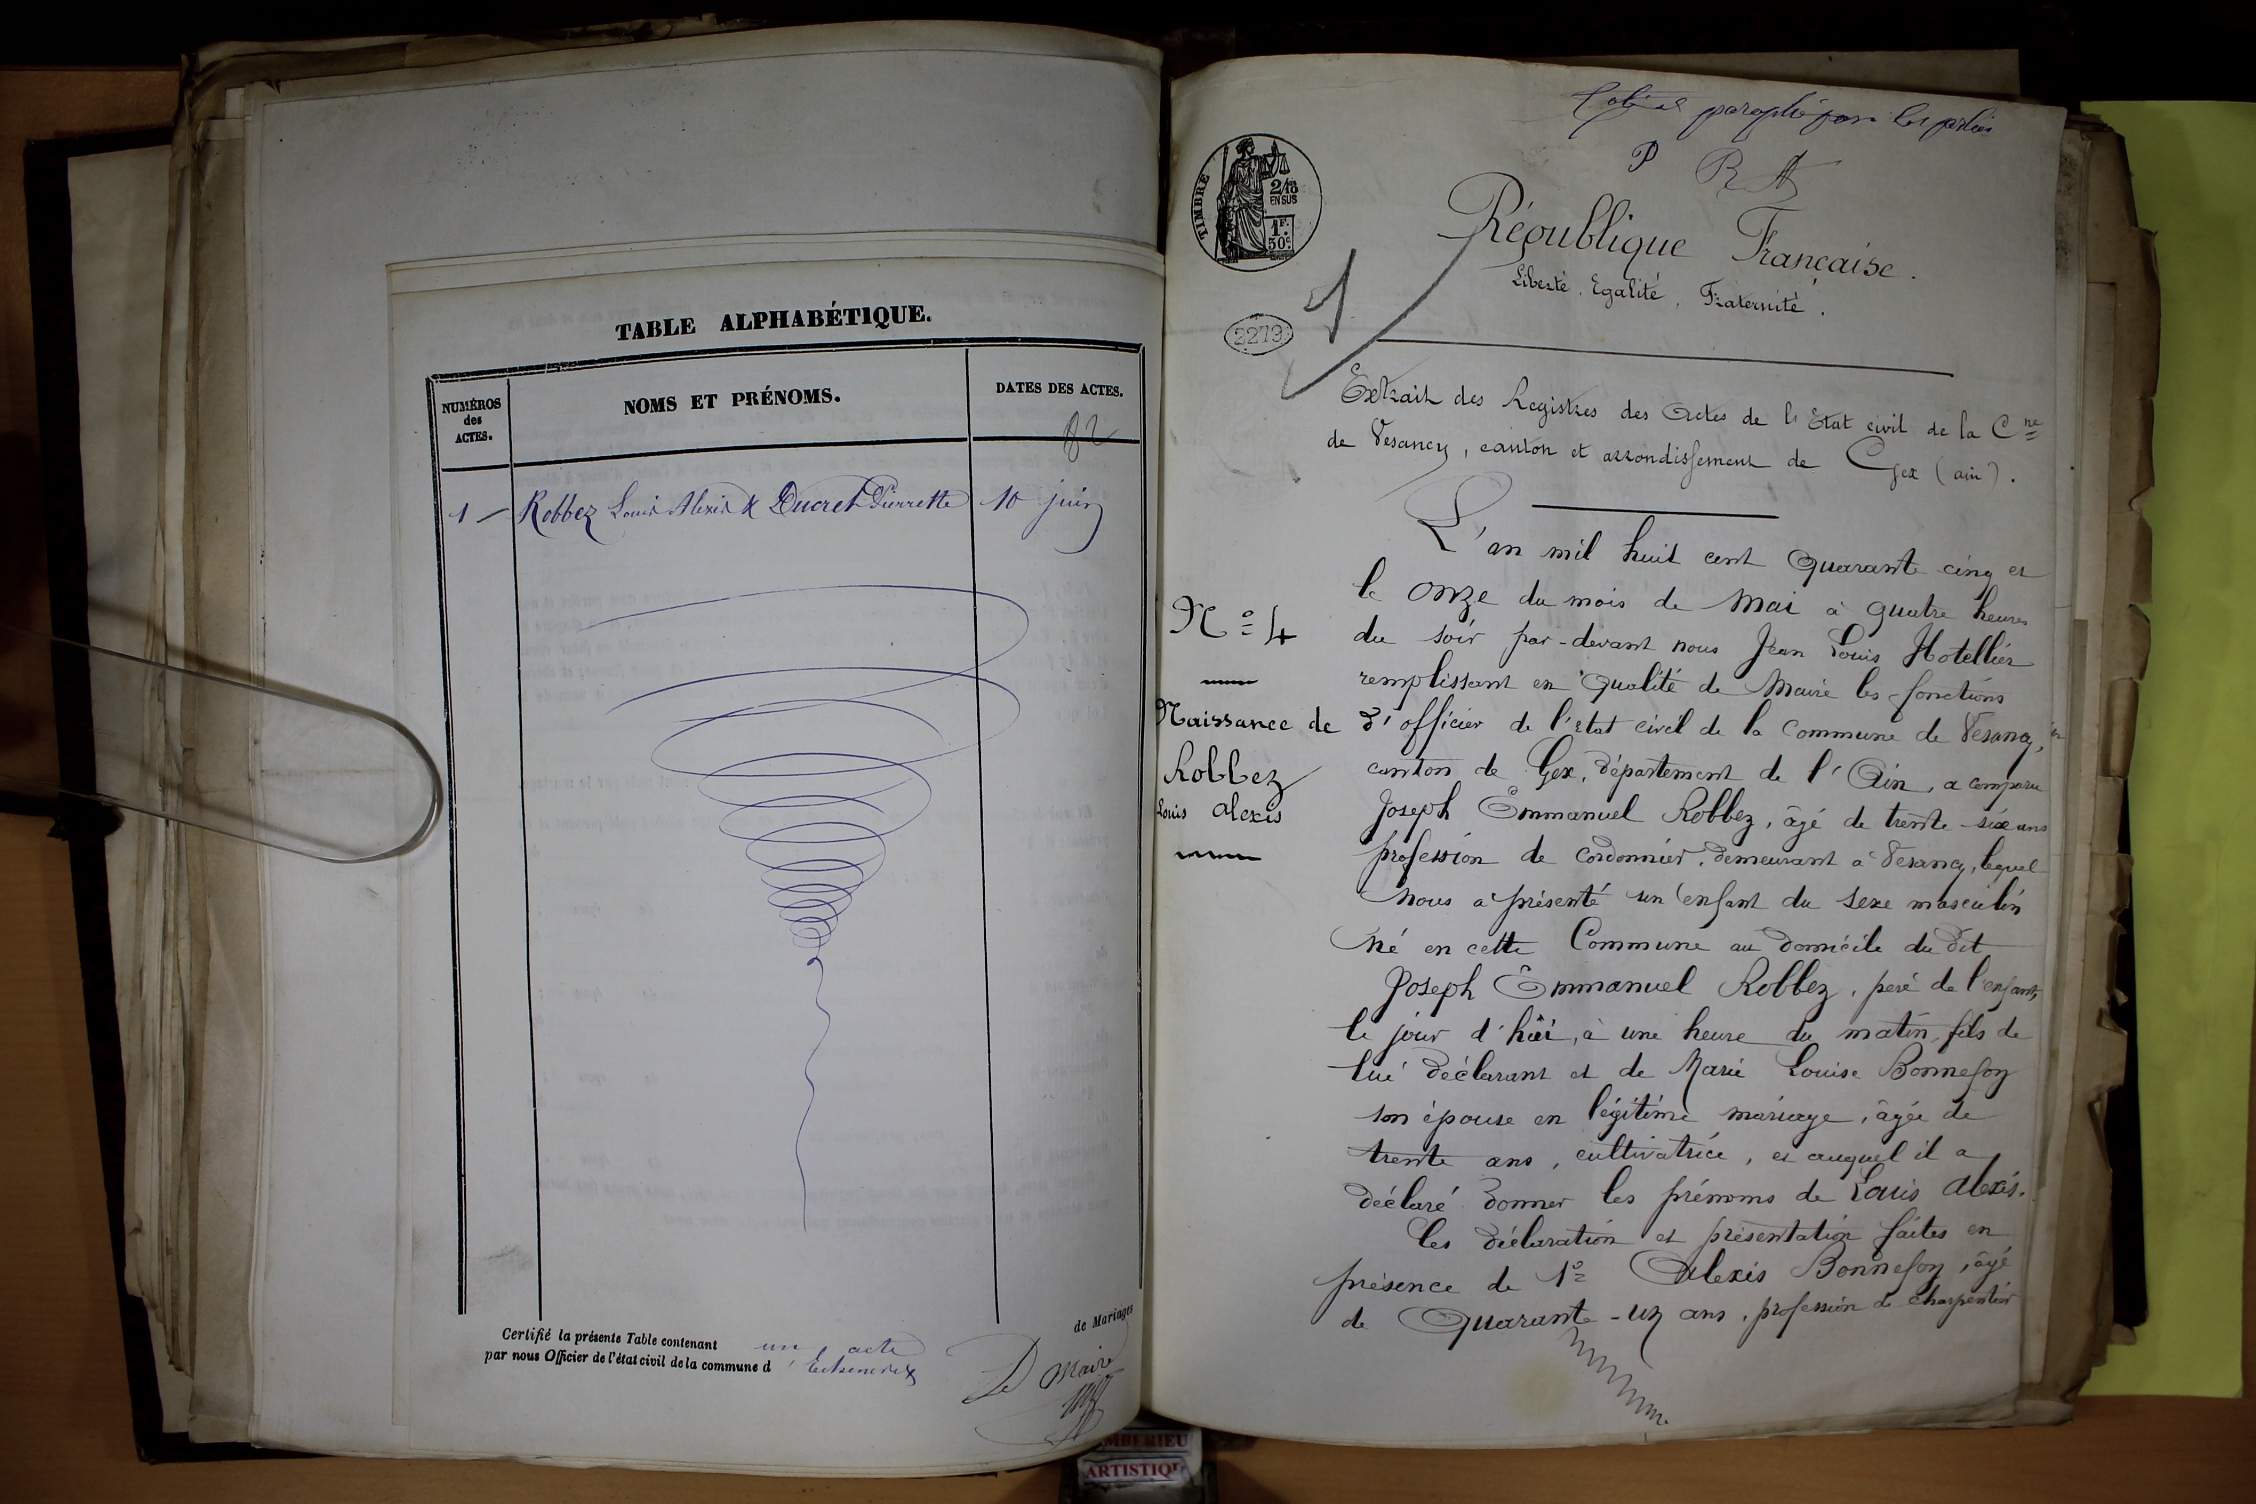 TABLE ALPHABÉTIQUE.
NUMÉROS
des
ACTES.
NOMS ET PRÉNOMS.
DATES DES ACTES.
82
1 — Robbez Louis Alexis & Ducret Pierrette 10 juin
Certifié la présente Table contenant un acte de Mariages
par nous Officier de l'état civil de la commune d'
Le Maire
paraphé par les parties
P R A
TIMBRE
2/10
EN SUS
1F.
50c.
2279
1
République Française.
Liberté, Egalité, Fraternité.
Extrait des Registres des Actes de l'Etat civil de la Cne
de Vesancy, canton et arrondissement de Gex (ain).
N° 4
Naissance de
Robbez
Louis Alexis
L'an mil huit cent quarante cinq et
le onze du mois de Mai à quatre heures
du soir par-devant nous Jean Louis Hotellier
remplissant en qualité de Maire les fonctions
d'officier de l'état civil de la Commune de Vesancy,
canton de Gex, département de l'Ain, a comparu
Joseph Emmanuel Robbez, âgé de trente-six ans
profession de cordonnier, demeurant à Vesancy, lequel
Nous a présenté un enfant du sexe masculin
Né en cette Commune au domicile du dit
Joseph Emmanuel Robbez, père de l'enfant,
le jour d'hui, à une heure du matin, fils de
lui déclarant et de Marie Louise Bonnefoy
son épouse en légitime mariage, âgée de
trente ans, cultivatrice, et auquel il a
déclaré donner les prénoms de Louis Alexis.
Les déclaration et présentation faites en
présence de 1° Alexis Bonnefoy, âgé
de Quarante-un ans, profession de charpentier
AMBERIEU
ARTISTIQUE